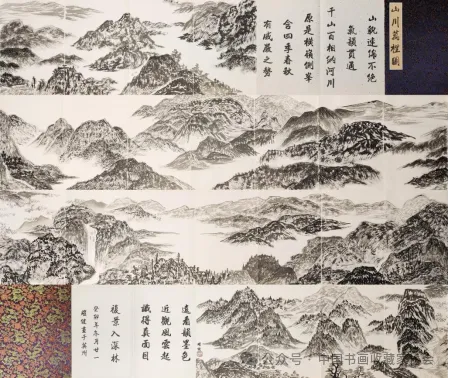 山川萬程圖
山貌連綿不絕
氣韻貫通
千山百相納河川
原是橫嶺側峯
含四季春秋
有威嚴之聲
遠看墨色
近觀風雲起
識得真面目
景入深林
癸卯年冬月廿一
公众号·中国书画收藏家协会